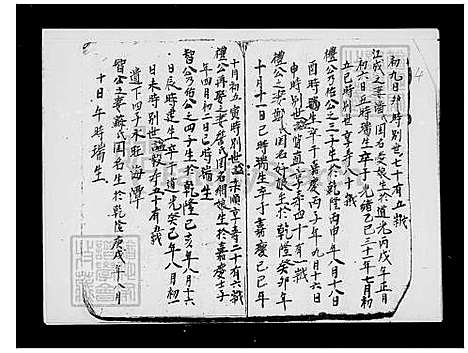 初九日卯時別世七十有五歲
江成之妻潘氏因名愛娘生於道光丙戌年正月
初六日五時瑞生卒于光緒乙巳三十一年七月初
五巳時別世享壽八十歲
禮公乃佑公之三子生於乾隆丙申年八月十八日
酉時瑞生卒于嘉慶丙子年九月十六日
申時別世諡質直享壽四十有一歲
禮公之妻鄭氏因名好娘生於乾隆癸卯年
十月十一日巳時瑞生卒于嘉慶己巳年
十月初五寅時別世諡柔順享壽二十有六歲
禮公再娶之妻詹氏因名綢娘生於嘉慶壬子
年四月初二日巳時瑞生
智公乃佑公之四子生於乾隆己亥年八月十六
日辰時建生卒于道光癸巳年八月初一
日未時別世諡毅享五十有五歲
遺下四子永旺海潭
智公之妻蘇氏因名生於乾隆庚戌年八月
十日午時瑞生